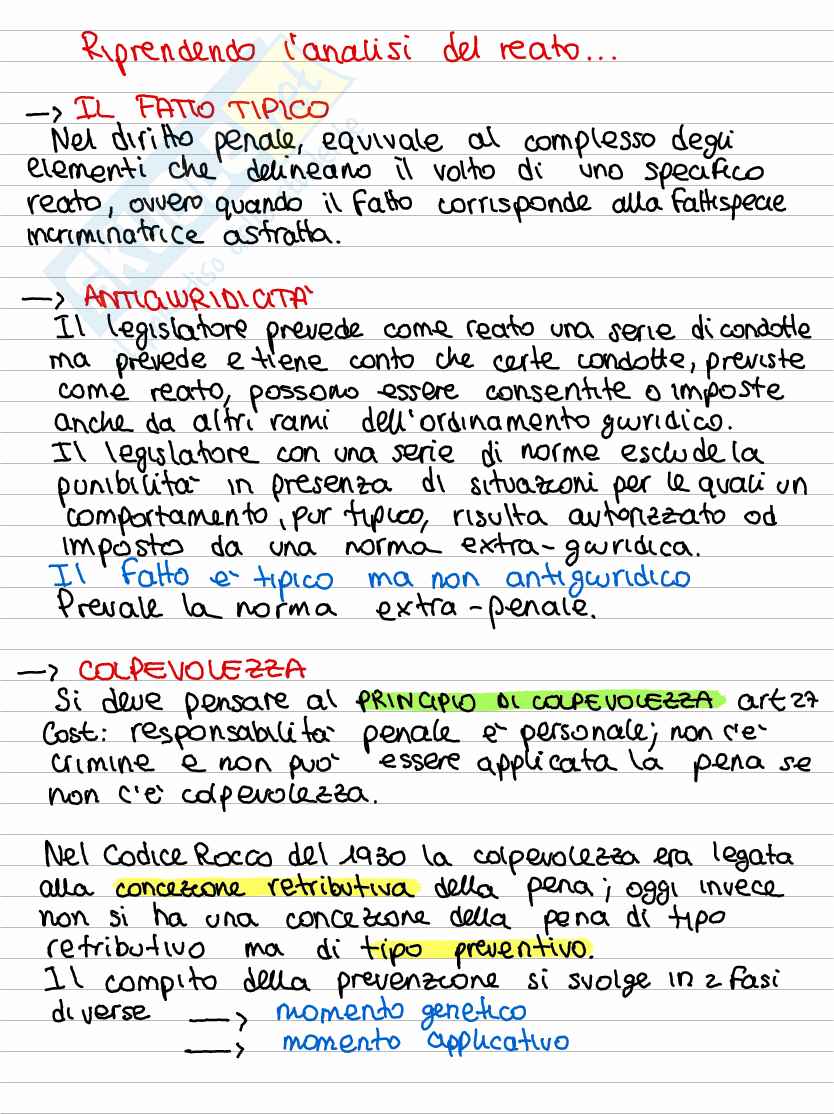 Riprendendo l'analisi del reato...
→ IL FATTO TIPICO
Nel diritto penale, equivale al complesso degli
elementi che delineano il volto di uno specifico
reato, ovvero quando il fatto corrisponde alla fattispecie
incriminatrice astratta.
→ ANTIGIURIDICITA'
Il legislatore prevede come reato una serie di condotte
ma prevede e tiene conto che certe condotte, previste
come reato, possono essere consentite o imposte
anche da altri rami dell'ordinamento giuridico.
Il legislatore con una serie di norme esclude la
punibilità in presenza di situazioni per le quali un
comportamento, pur tipico, risulta autorizzato od
imposto da una norma extra-giuridica.
Il fatto è tipico ma non antigiuridico
Prevale la norma extra-penale.
→ COLPEVOLEZZA
Si deve pensare al PRINCIPIO DI COLPEVOLEZZA art 27
Cost: responsabilità penale è personale; non c'è
crimine e non può essere applicata la pena se
non c'è colpevolezza.
Nel Codice Rocco del 1930 la colpevolezza era legata
alla concezione retributiva della pena; oggi invece
non si ha una concezione della pena di tipo
retributivo ma di tipo preventivo.
Il compito della prevenzione si svolge in 2 fasi
diverse → momento genetico
→ momento applicativo